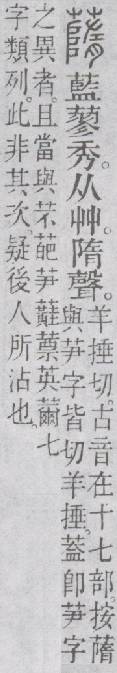 䔺藍蓼秀。从艸。隋聲。
羊捶切。古音在十七部。按䔺
與芛字皆切羊捶。蓋卽芛字
之異者。且當與芣葩芛蘳蔈英薾七
字類列。此非其次。疑後人所沾也。